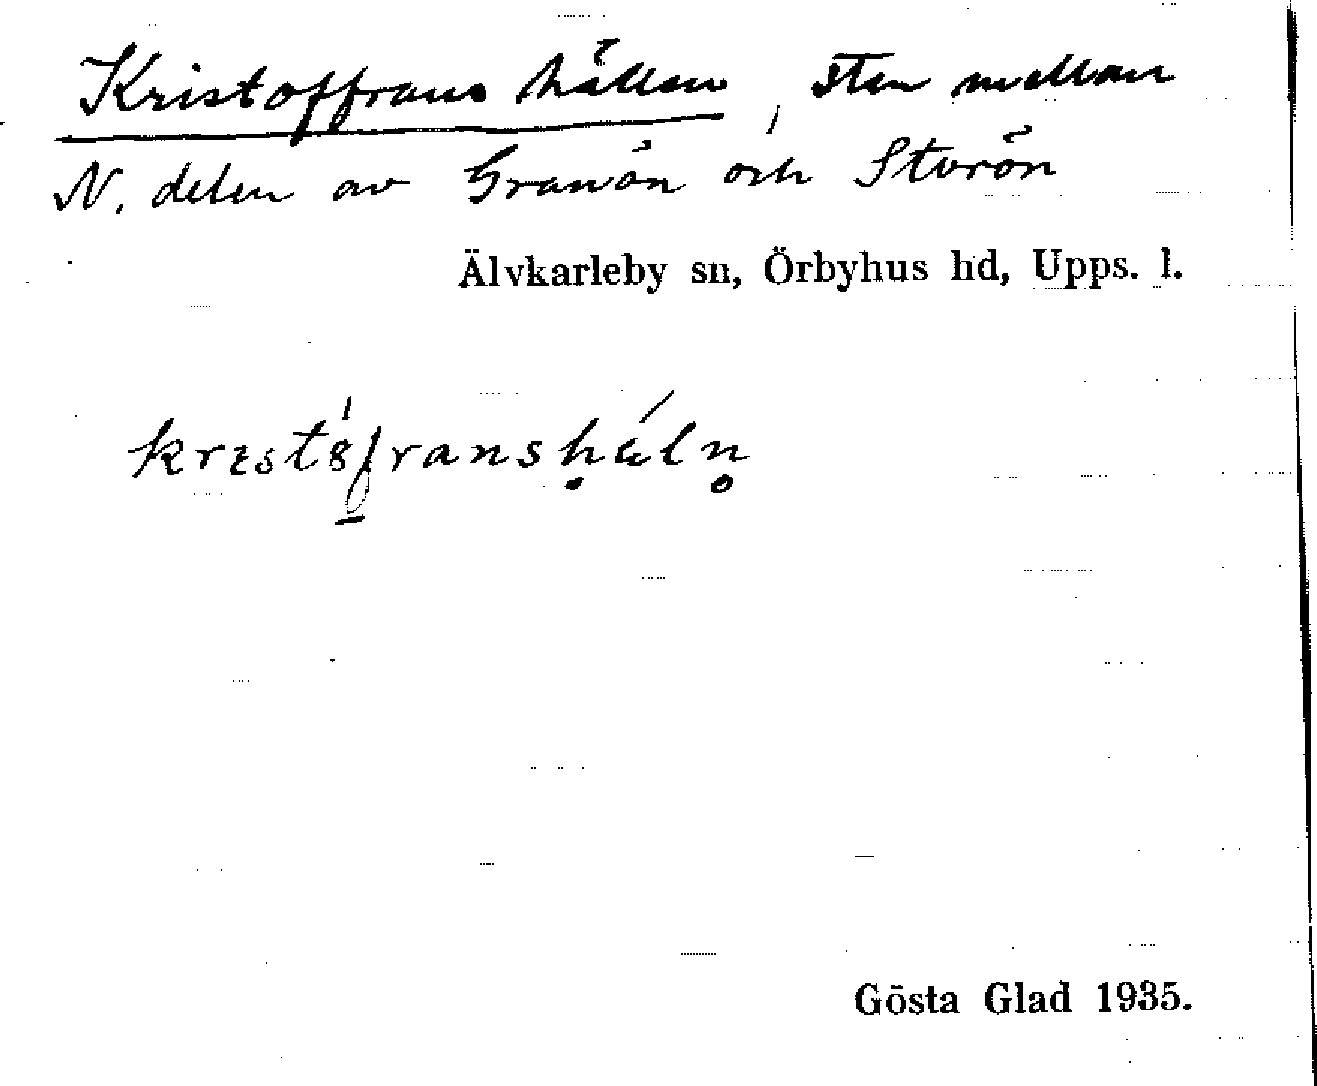 Kristoffrans hällen, sten mellan
N. delen av Granön och Storön
Älvkarleby sn, Örbyhus hd, Upps. l.
Gösta Glad 1935.